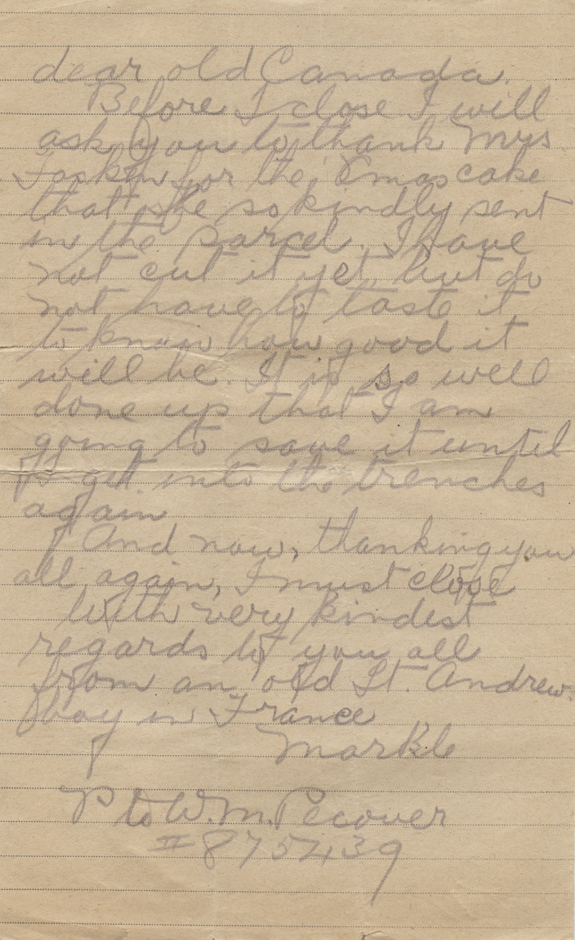 dear old Canada.
Before I close I will
ask you to thank Mrs.
for the Xmas cake
that she so kindly sent
in the parcel. I have
not cut it yet, but do
not have to taste it
to know how good it
will be. It is so well
done up that I am
going to save it until
I get into the trenches
again
And now, thanking you
all again, I must close
With very kindest
regards to you all
from an old St. Andrew's
boy in France
Markle
Pte W. M. Pecover
# 875439